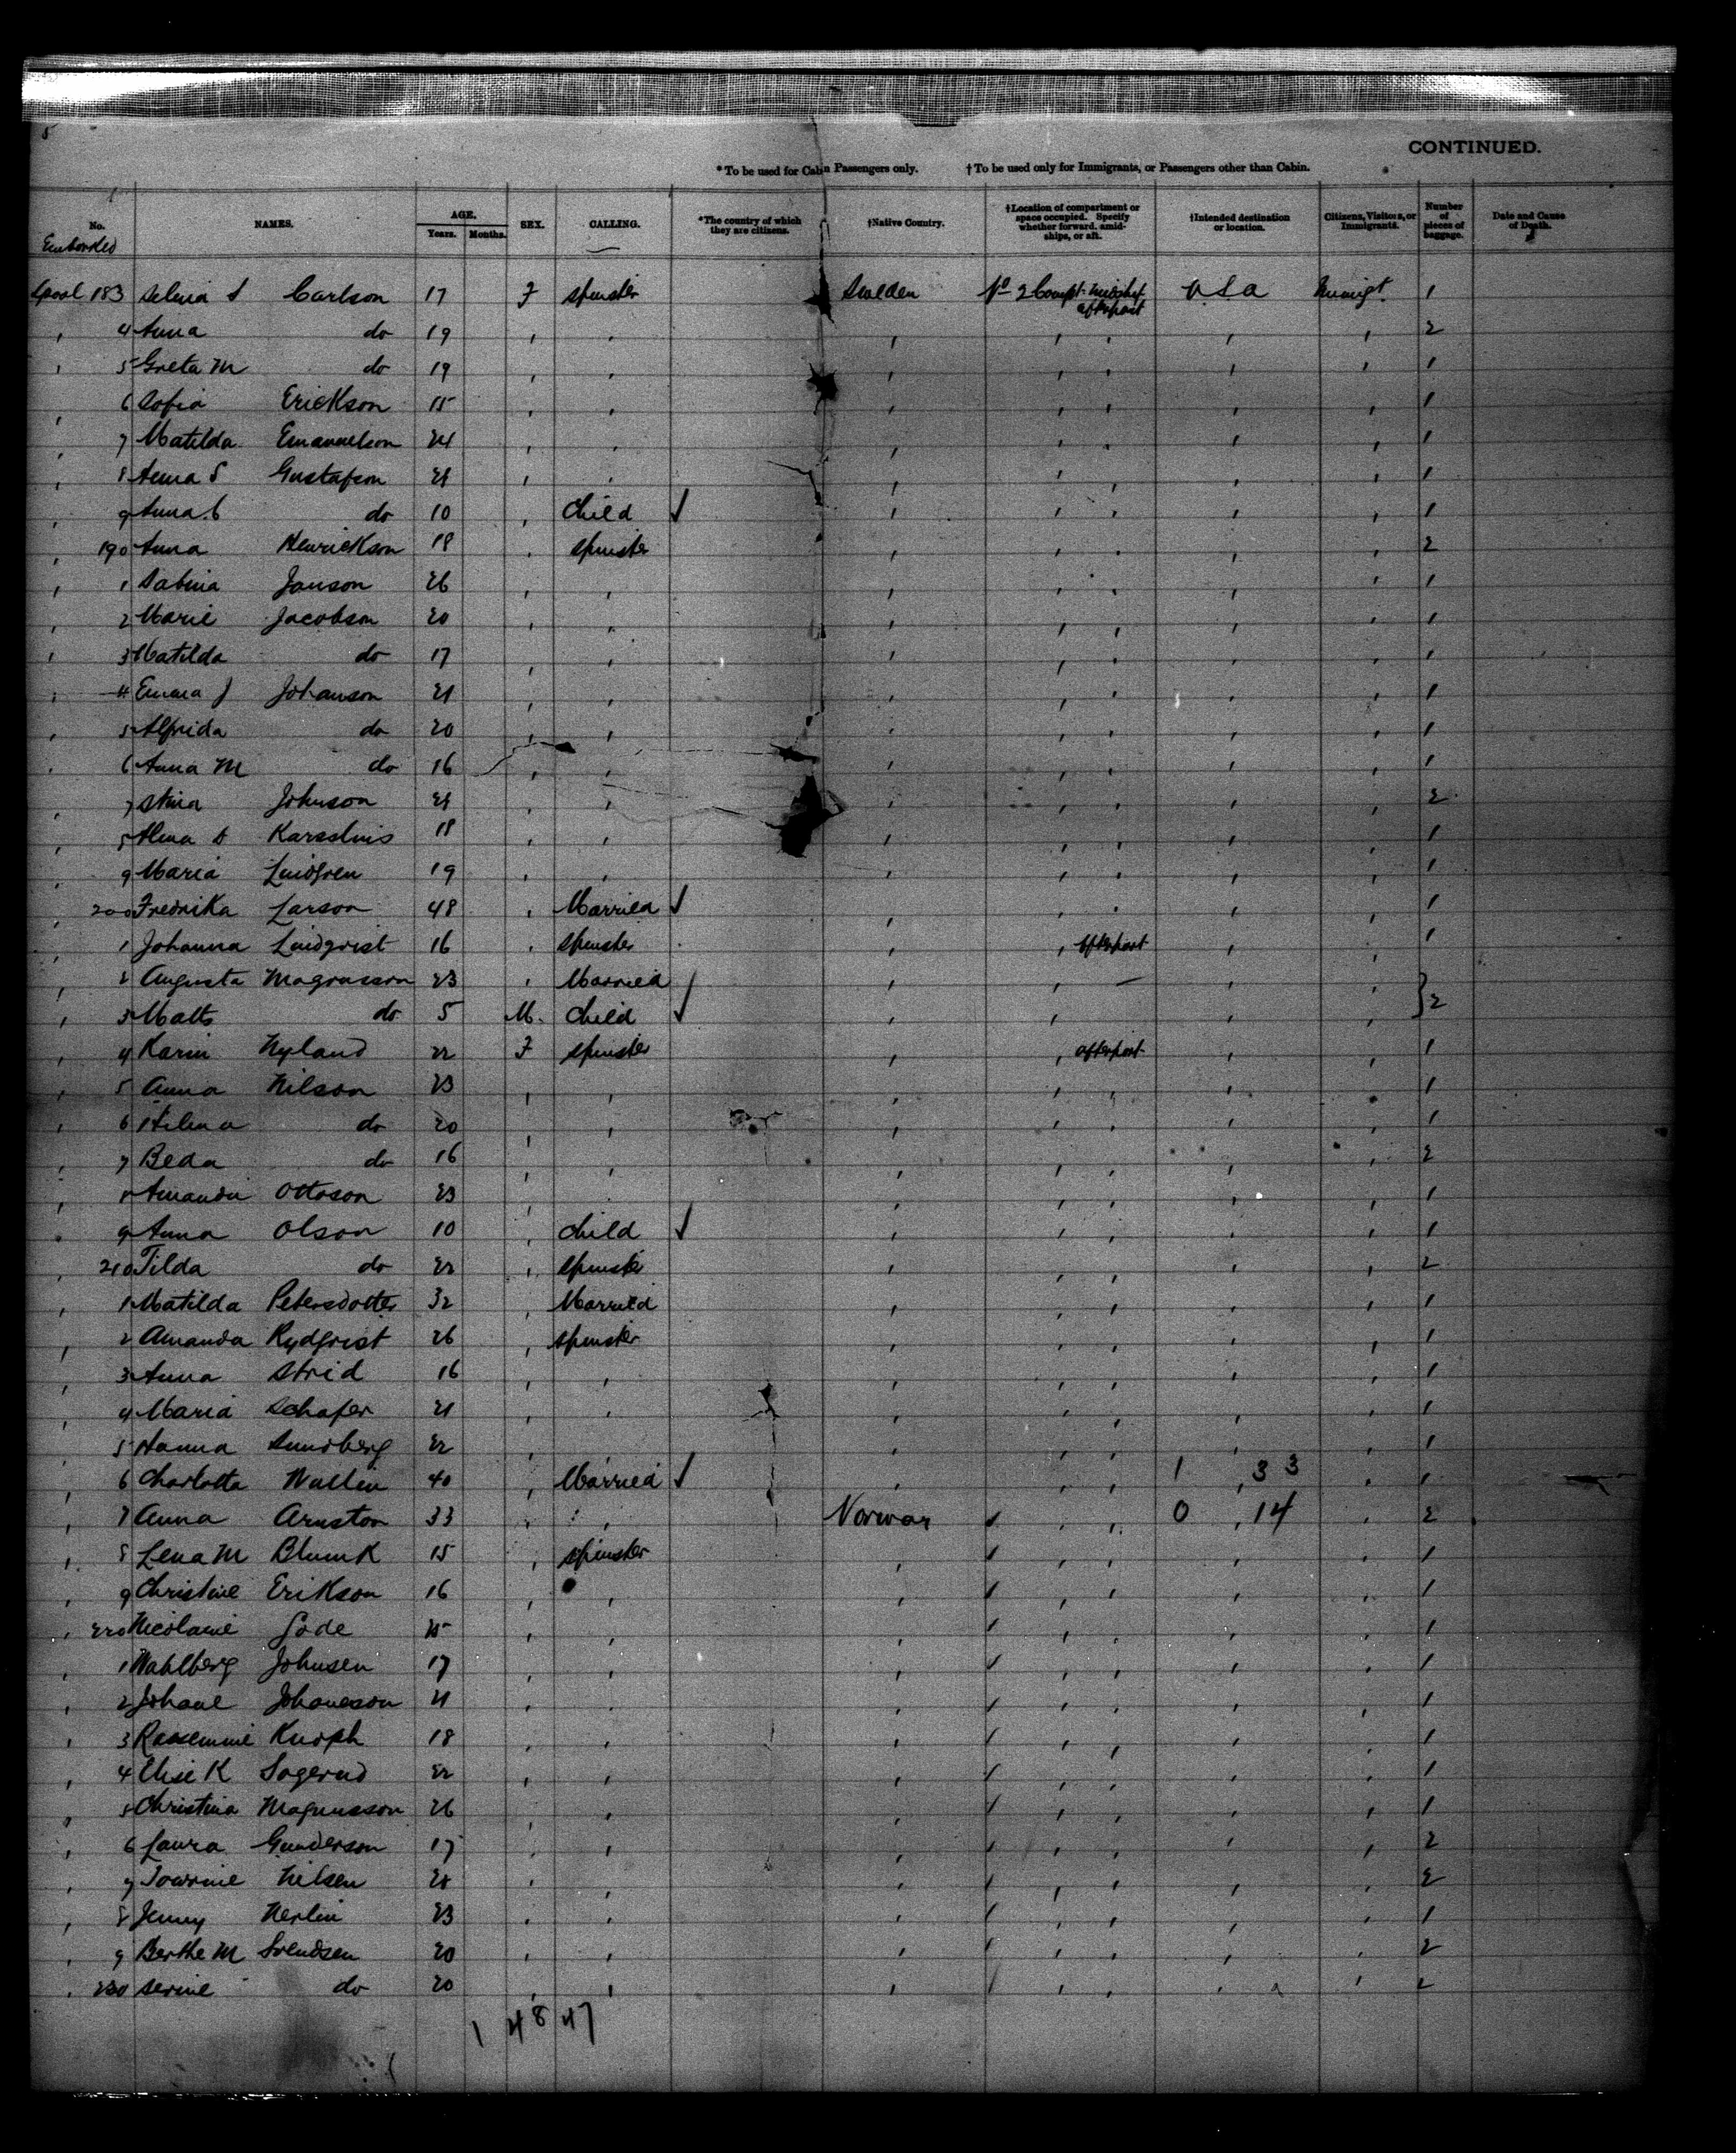 5
CONTINUED.
*To be used for Cabin Passengers only. †To be used only for Immigrants, or Passengers other than Cabin.
No. NAMES. AGE. Years. Months. SEX. CALLING. *The country of which they are citizens. †Native Country. †Location of compartment or space occupied. Specify whether forward, amidships, or aft. †Intended destination or location. Citizens, Visitors, or Immigrants. Number of pieces of baggage. Date and Cause of Death.
Embarked
Lpool 183 Selma S Carlson 17 F spinster Sweden No 2 Compt midship afterpart U S A Immigt. 1
4 Anna do 19 2
5 Greta M do 19 1
6 Sofia Erickson 15 1
7 Matilda Emanuelson 24 1
8 Anna S Gustafson 21 1
9 Anna C do 10 Child ✓ 1
190 Anna Henrickson 18 spinster 2
1 Sabina Janson 26 1
2 Marie Jacobson 20 1
3 Matilda do 17 1
4 Emma J Johanson 21 1
5 Alfrida do 20 1
6 Anna M do 16 1
7 Stina Johnson 21 2
8 Alma 18 1
9 Maria Lindgren 19 1
200 Fredrika Larson 48 Married ✓ 1
1 Johanna Lindqvist 16 spinster afterpart 1
2 Augusta Magnusson 23 Married — } 2
3 Matts do 5 M. Child ✓
4 Karin Nyland 22 F spinster afterpart 1
5 Anna Nilson 23 1
6 Hilma do 20 1
7 Beda do 16 2
8 Amanda Ottoson 23 1
9 Anna Olson 10 Child ✓ 1
210 Tilda do 22 spinster 2
1 Matilda Petersdotter 32 Married 1
2 Amanda Rydqvist 26 spinster 1
3 Anna Strid 16 1
4 Maria Schafer 21 1
5 Hanna Sundberg 22 1
6 Charlotta Wallin 40 Married ✓ 1 33 1
7 Anna Arnston 33 Norway 0 14 2
8 Lena M 15 spinster 1
9 Christine Erikson 16 1
220 Nicolaine Gode 25 1
1 Wahlberg Johnsen 17 1
2 Johane Johaneson 21 1
3 Knoph 18 1
4 Elise K Sogerud 22 1
5 Christina Magnusson 26 1
6 Laura Gunderson 17 2
7 Nilsen 2
8 Jenny Nerlin 23 1
9 Berthe M Svendsen 20 2
230 Serine do 20 2
1 48 47